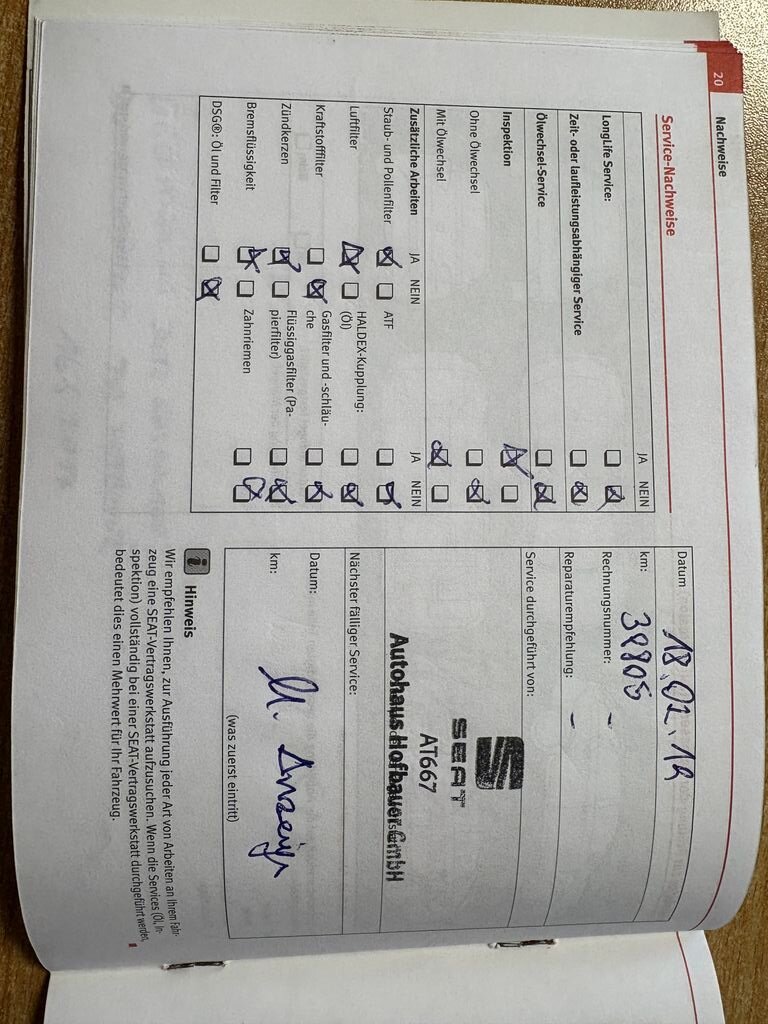 20
Nachweise
Service-Nachweise
JA NEIN
LongLife Service:
Zeit- oder laufleistungsabhängiger Service
Ölwechsel-Service
Inspektion
Ohne Ölwechsel
Mit Ölwechsel
Zusätzliche Arbeiten JA NEIN JA NEIN
Staub- und Pollenfilter ATF
Luftfilter HALDEX-Kupplung:
(Öl)
Kraftstofffilter Gasfilter und -schläu-
che
Zündkerzen Flüssiggasfilter (Pa-
pierfilter)
Bremsflüssigkeit Zahnriemen
DSG®: Öl und Filter
Datum
km:
Rechnungsnummer: -
Reparaturempfehlung: -
Service durchgeführt von:
SEAT
AT667
Autohaus Hofbauer GmbH
Nächster fälliger Service:
Datum:
km:
(was zuerst eintritt)
i Hinweis
Wir empfehlen Ihnen, zur Ausführung jeder Art von Arbeiten an Ihrem Fahr-
zeug eine SEAT-Vertragswerkstatt aufzusuchen. Wenn die Services (Öl, In-
spektion) vollständig bei einer SEAT-Vertragswerkstatt durchgeführt werden,
bedeutet dies einen Mehrwert für Ihr Fahrzeug.